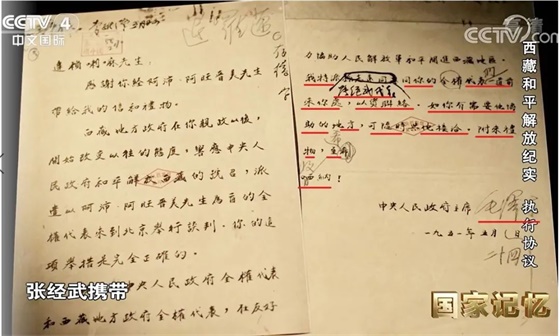 CCTV 4
中文国际
CCTV
高清
达赖喇嘛先生：
感谢你经阿沛·阿旺晋美先生
带给我的信和礼物。
西藏地方政府在你亲政以后，
开始改变以往的态度，响应中央人
民政府和平解放西藏的号召，派
遣以阿沛·阿旺晋美先生为首的全
权代表来到北京举行谈判。你的这
项举措是完全正确的。
中央人民政府全权代表
和西藏地方政府全权代表，在友好
力协助人民解放军和平开进西藏地区。
我特派 同你的全权代表一道前
来你处，以资联络。如你有需要他协
助的地方，可随时与他接洽。附来礼
物，至希
哂纳！
中央人民政府主席 毛泽东
一九五一年五月 日
二十四
西藏和平解放纪实 执行协议
张经武携带
国家记忆